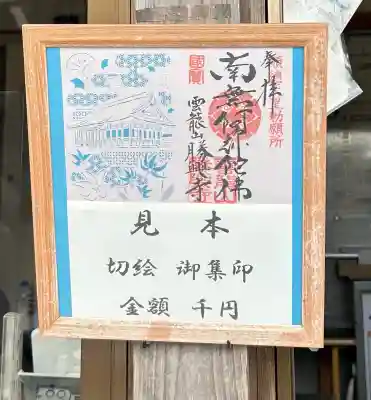 奉拝
南無阿弥陀佛
雲龍山勝興寺
国宝
見本
切絵 御集印
金額 千円